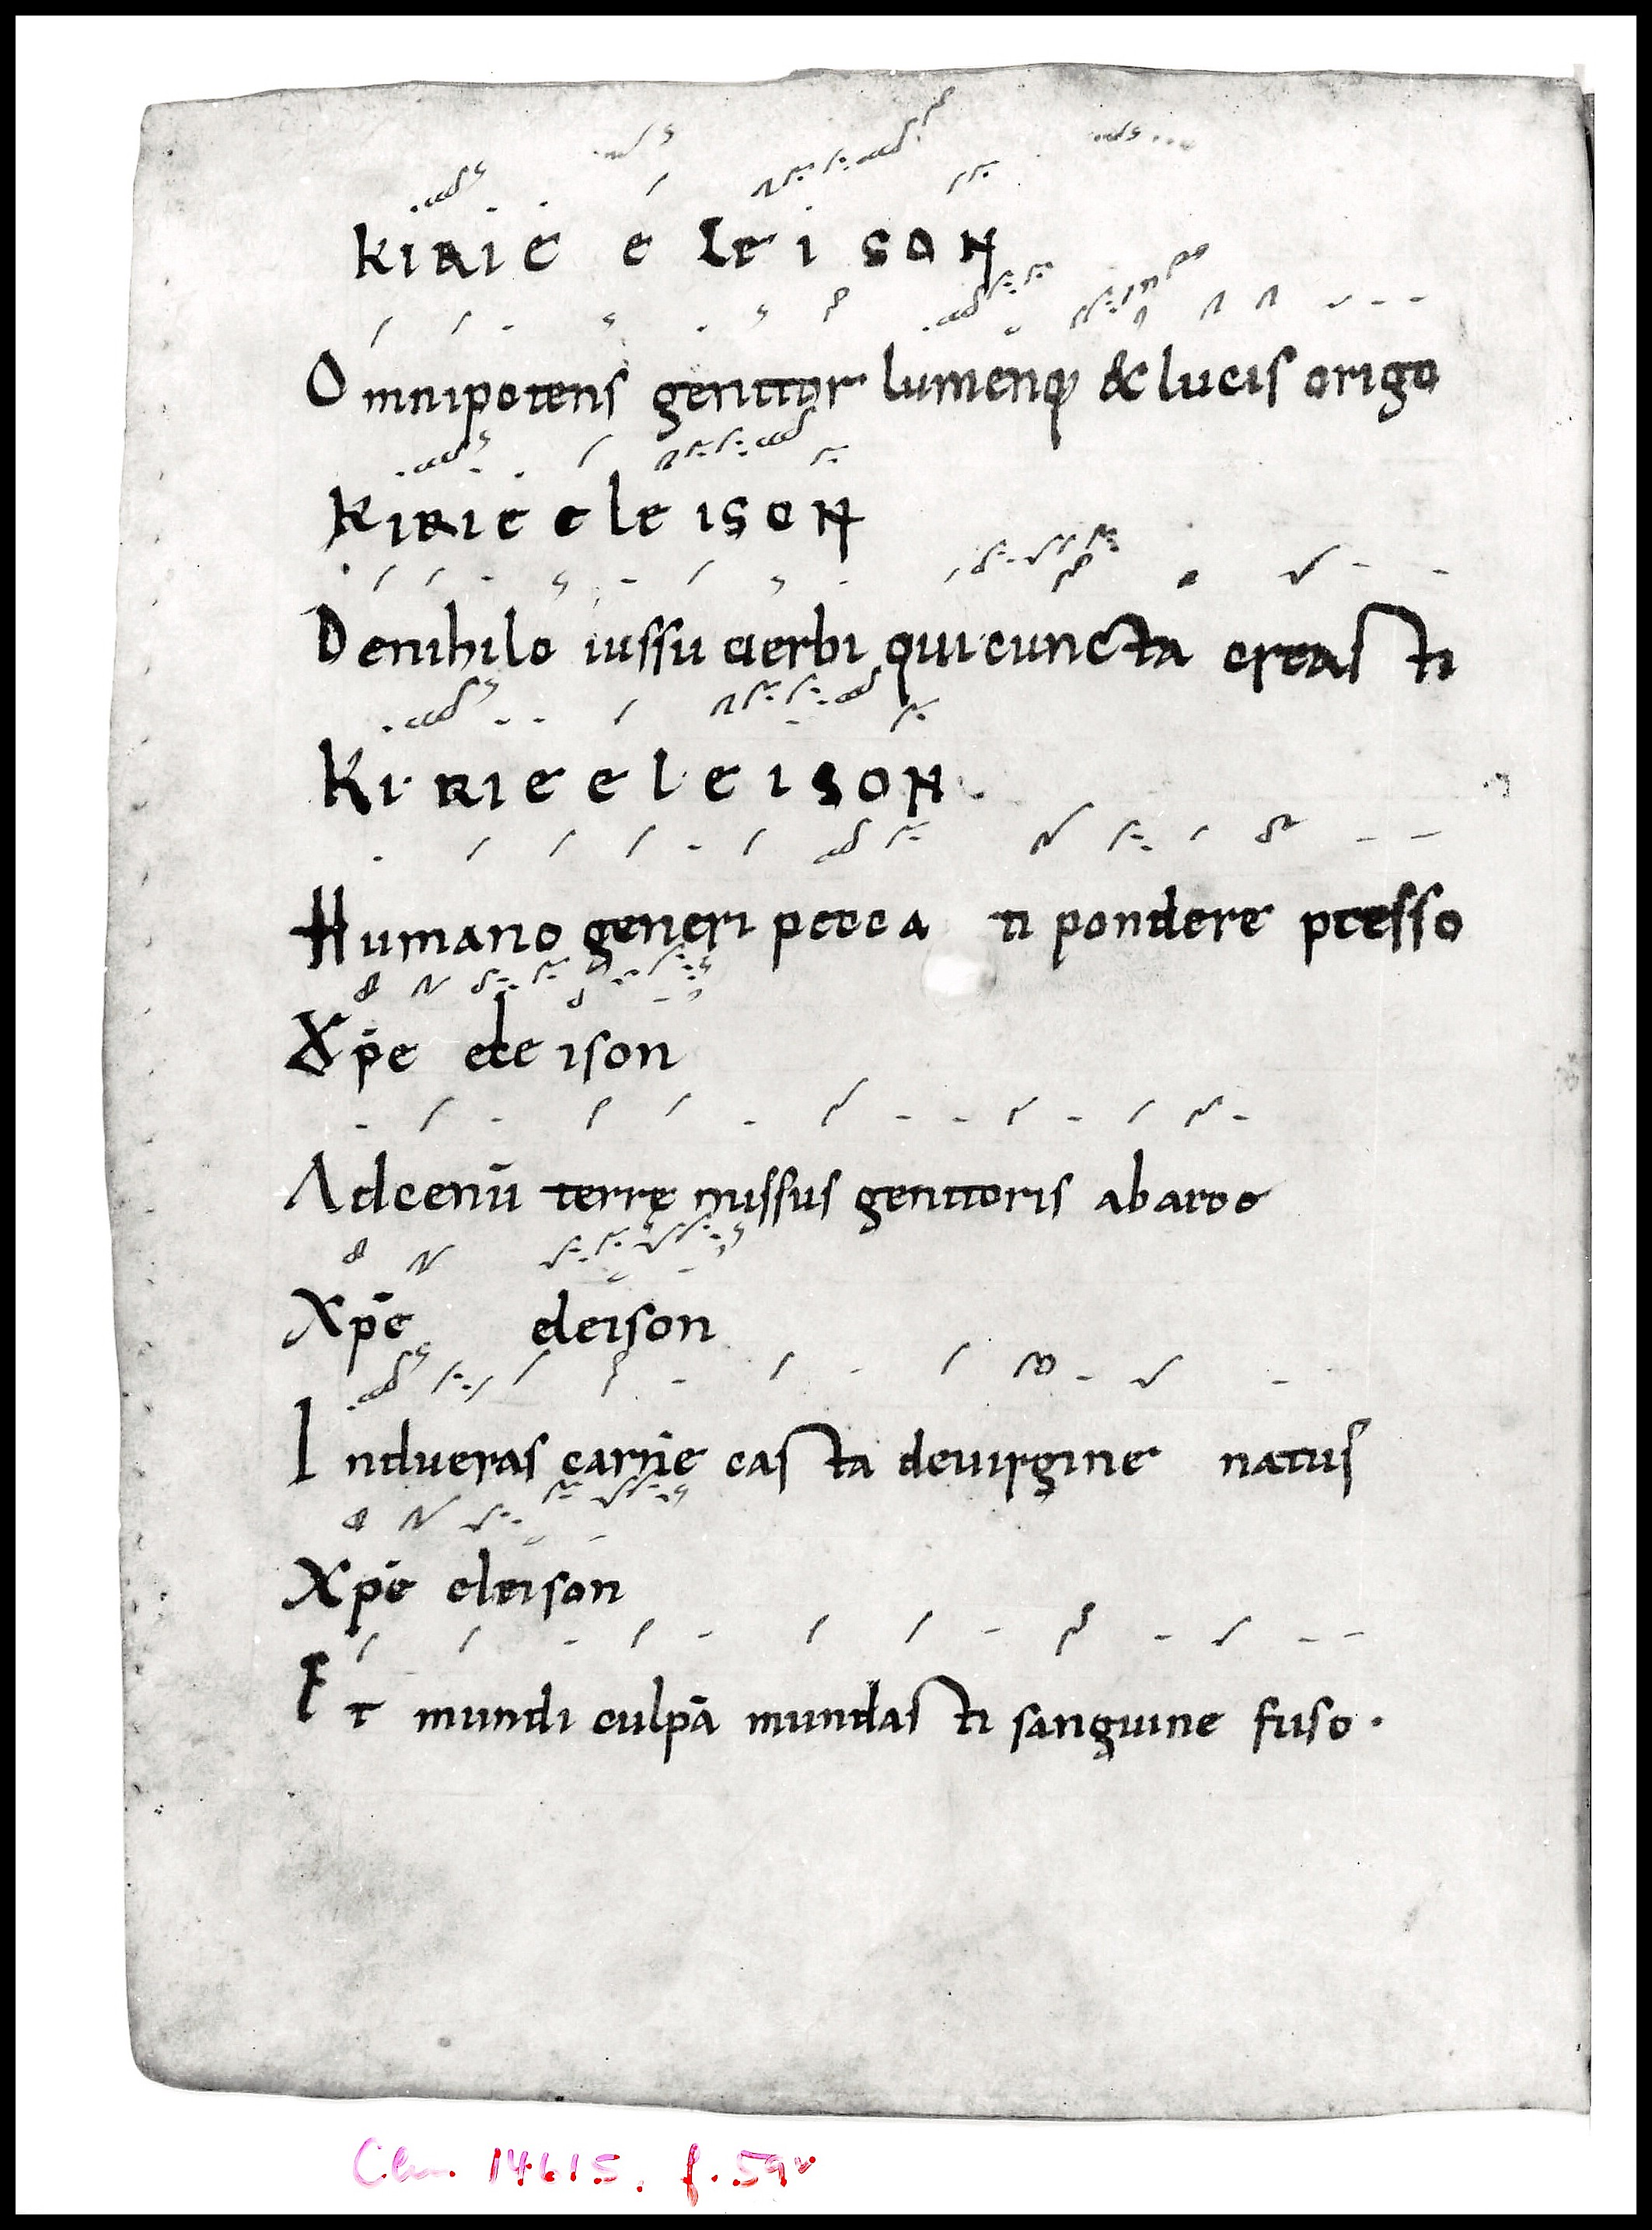 KIRIE eleiSON
Omnipotens genitor lumenq; & lucis origo
KIRIE eleiSON
Denihilo iussu uerbi quicuncta creasti
KIRIE eleiSON.
Humano generi pecca ti pondere presso
Xp̄e eleison
Adcenū terrę missus genitoris abarce
Xp̄e eleison
Indueras carne casta deuirgine natus
Xp̄e eleison
Et mundi culpā mundasti sanguine fuso.
Clm. 14615, f. 59v